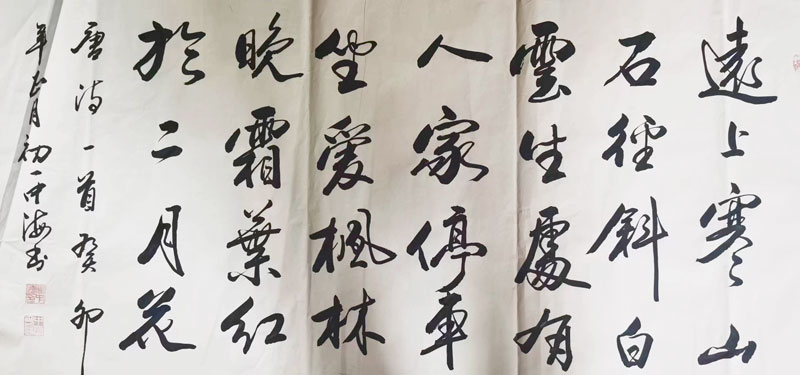 遠上寒山
石徑斜白
雲生處有
人家停車
坐愛楓林
晚霜葉红
於二月花
唐诗一首癸卯
年正月初一中海书